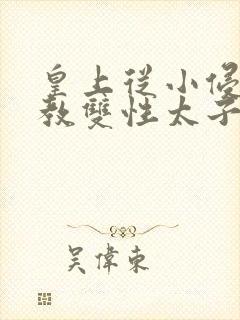 皇上從小
教雙性太子
吴偉東